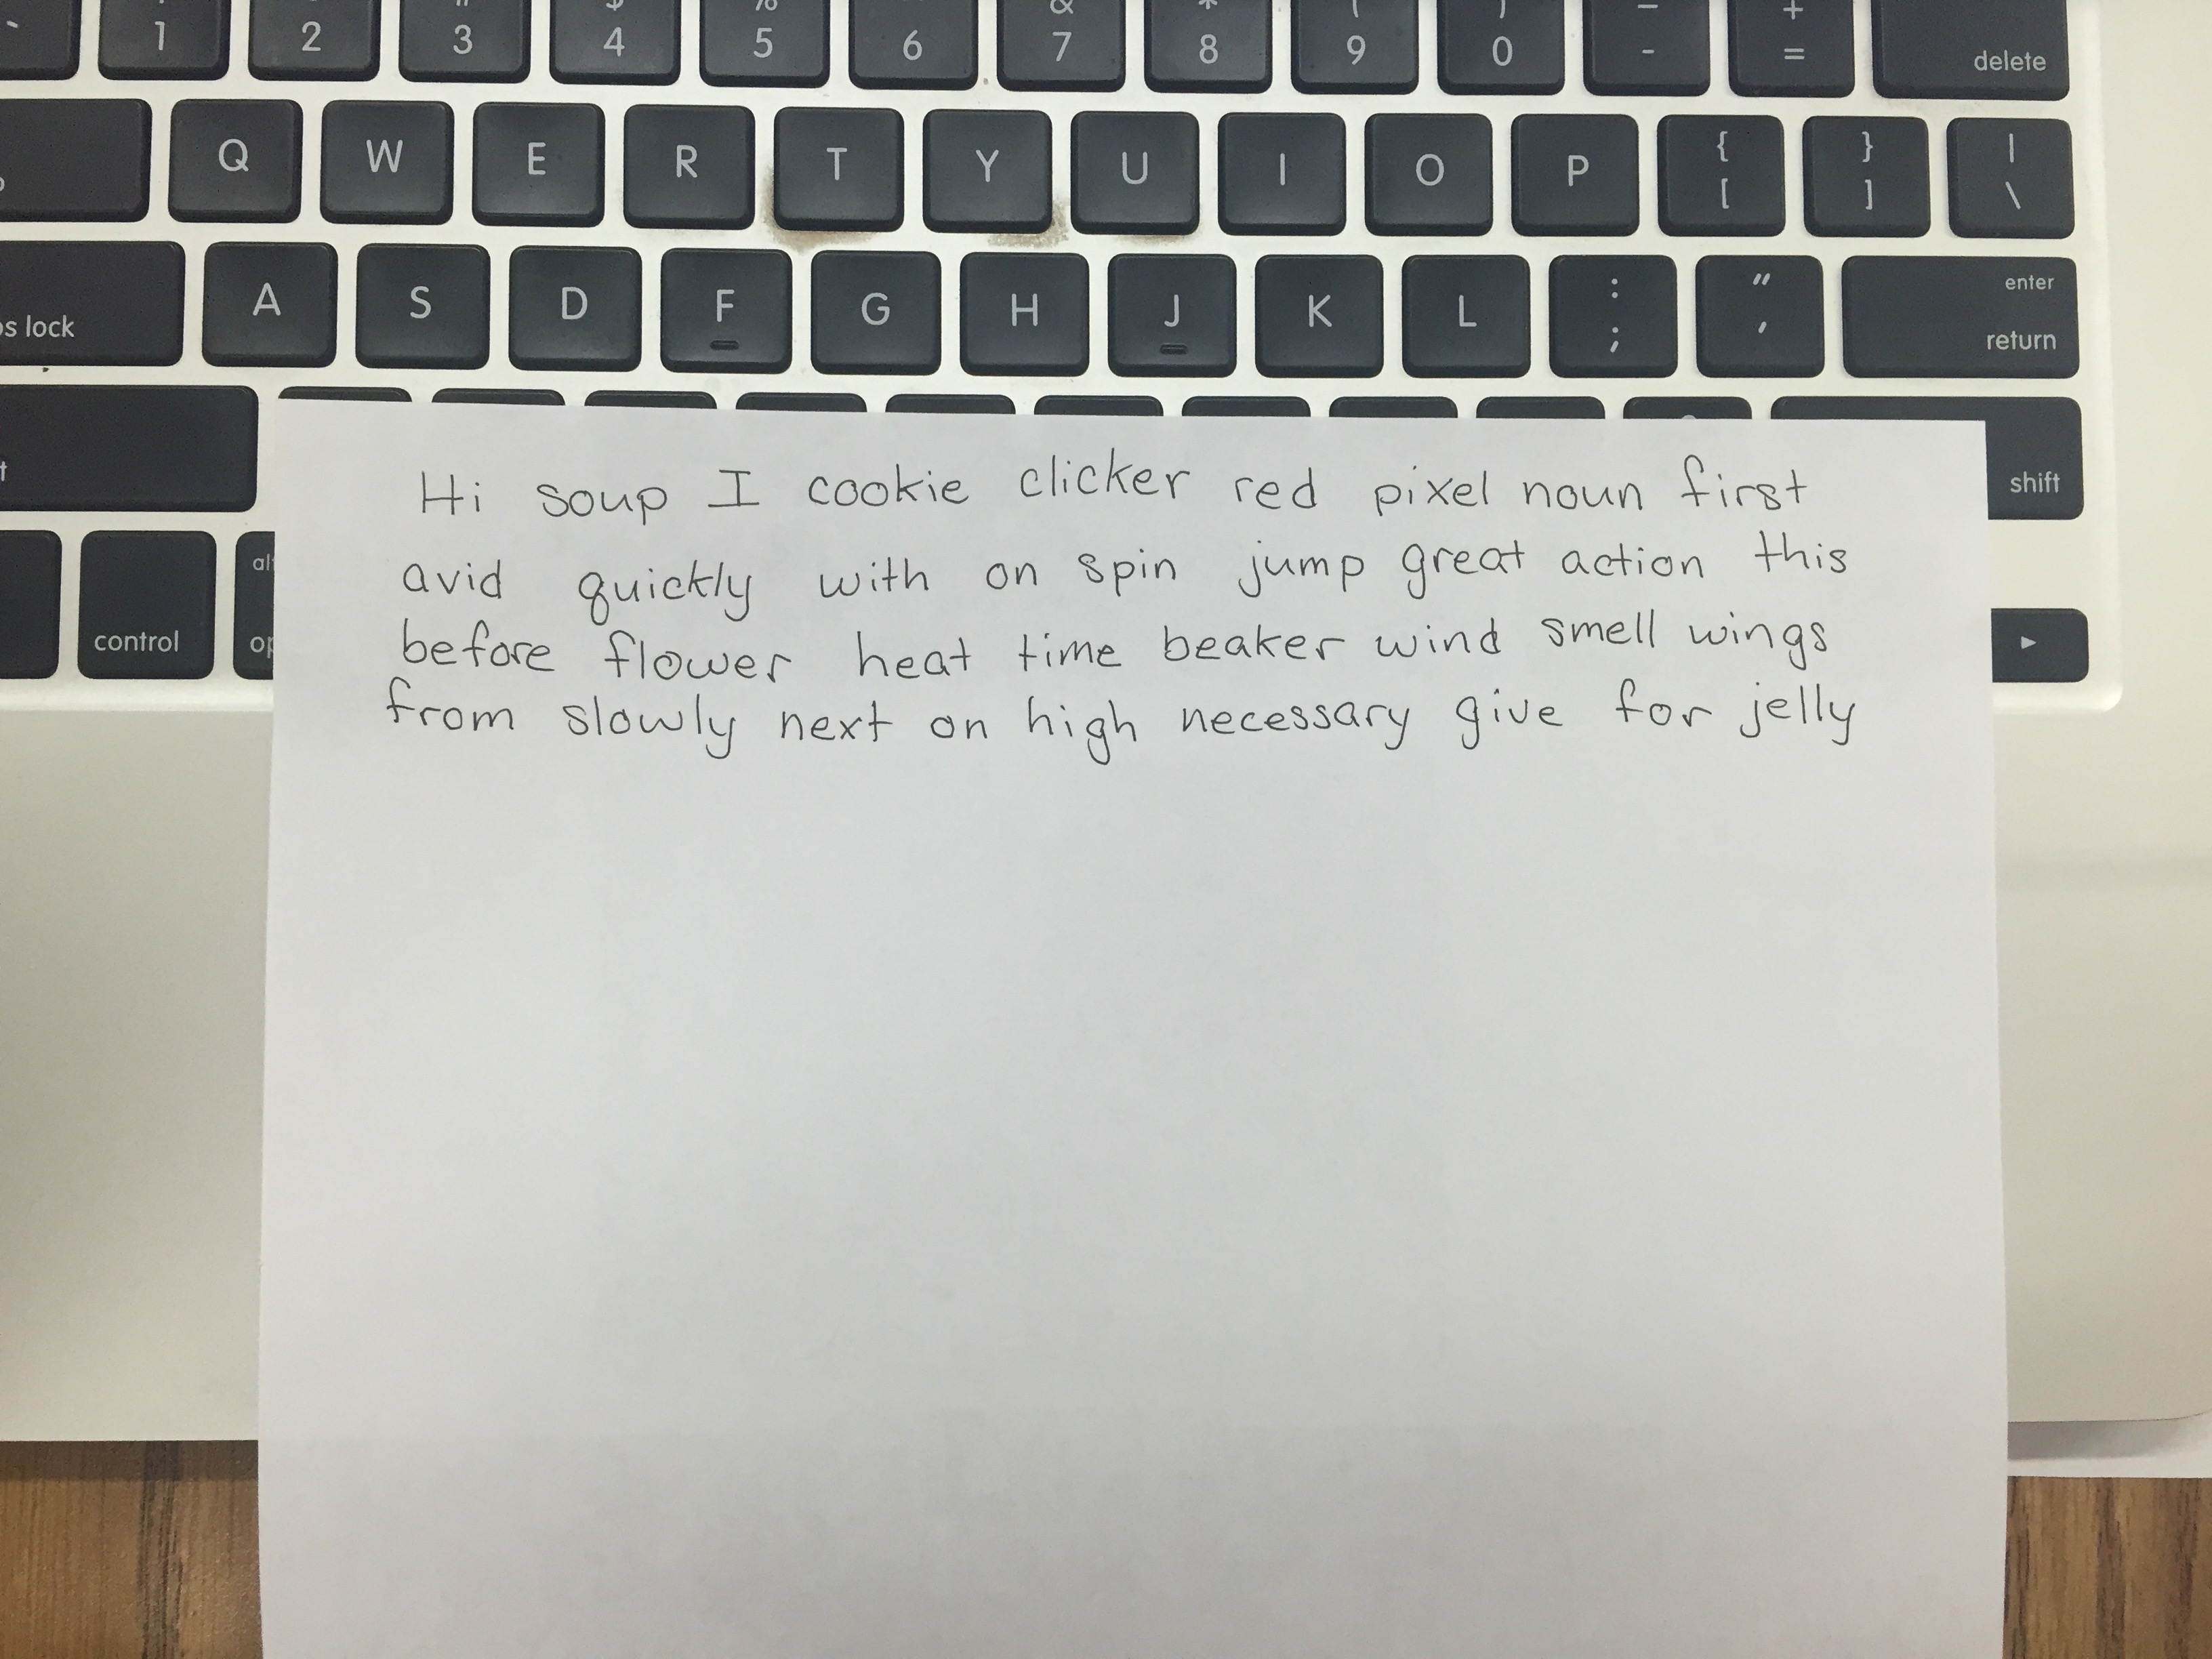 1 2 3 4 5 6 7 8 9 0 - + =
delete
Q W E R T Y U I O P { [ } ] | \
s lock A S D F G H J K L : ; " ' enter return
shift
control
Hi soup I cookie clicker red pixel noun first
avid quickly with on spin jump great action this
before flower heat time beaker wind smell wings
from slowly next on high necessary give for jelly